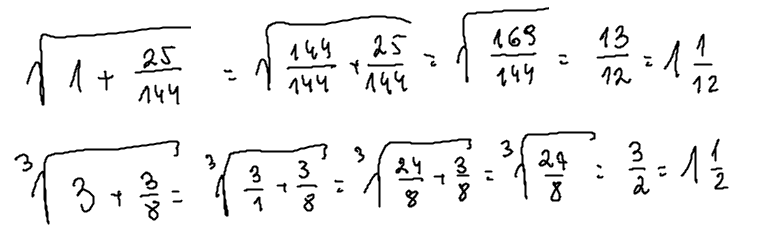 √(1 + 25/144) = √(144/144 + 25/144) = √(169/144) = 13/12 = 1 1/12
³√(3 + 3/8) = ³√(3/1 + 3/8) = ³√(24/8 + 3/8) = ³√(27/8) = 3/2 = 1 1/2